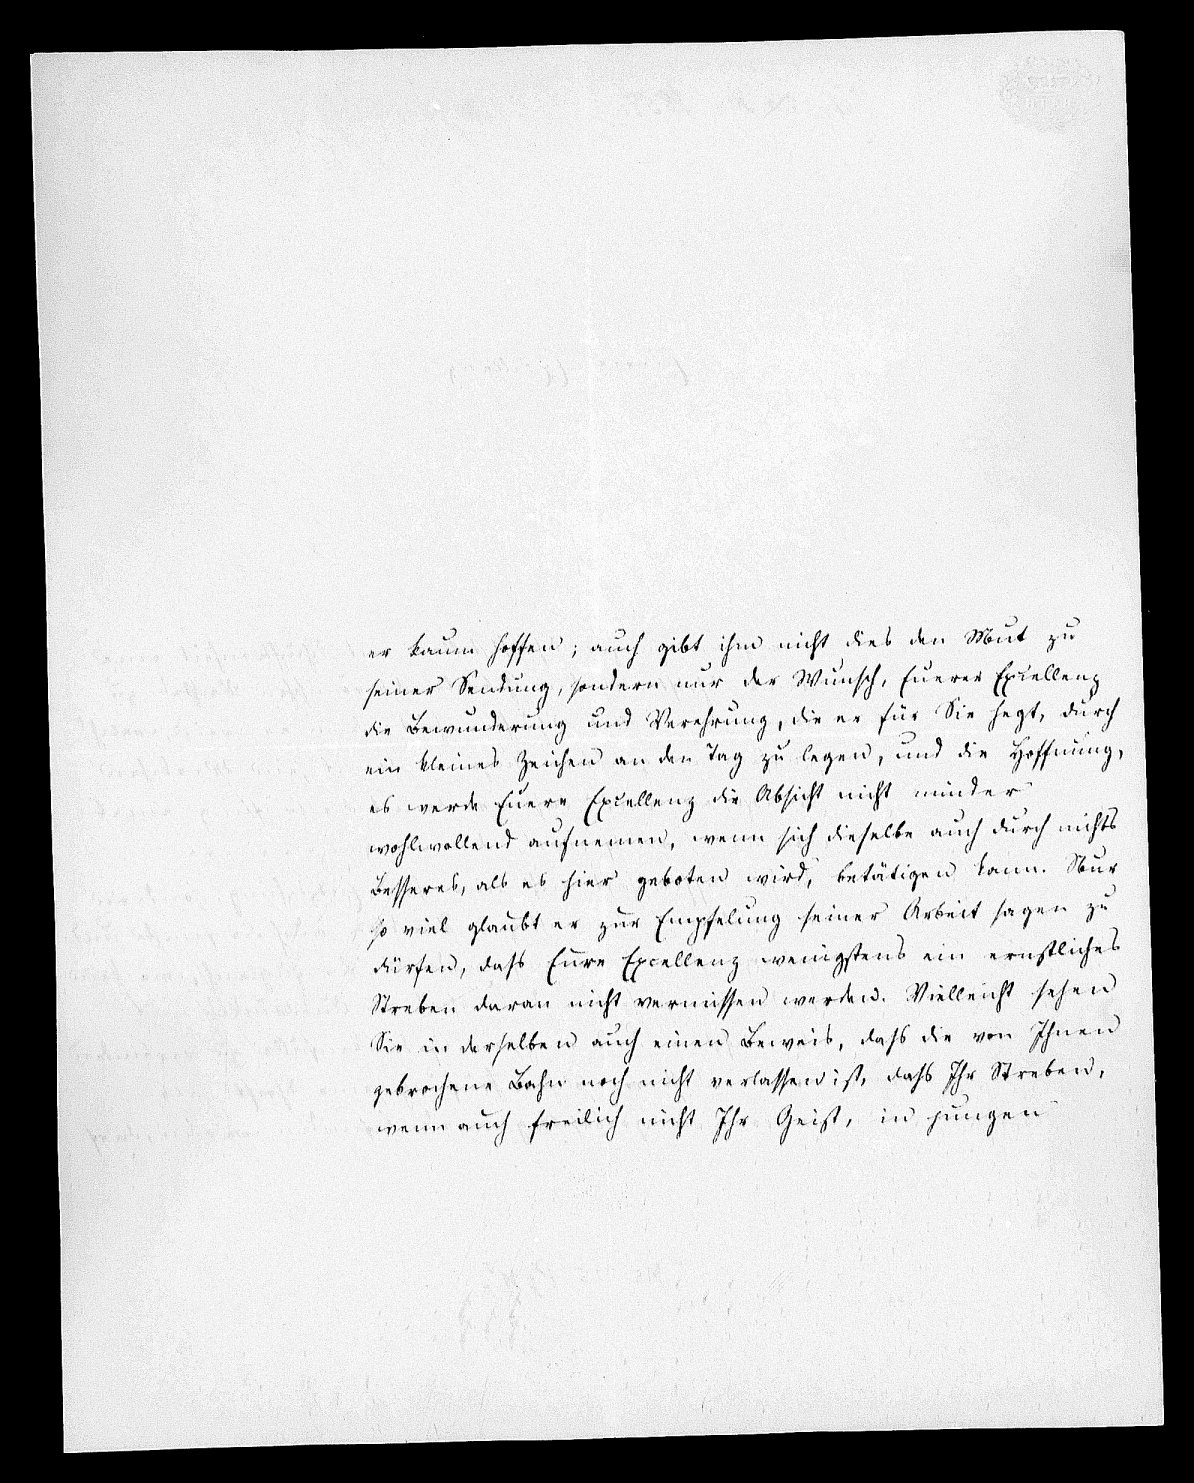 er kaum hoffen; auch gibt ihm nicht dies den Mut zu
seiner Sendung, sondern nur der Wunsch, Euerer Excellenz
die Bewunderung und Verehrung, die er für Sie hegt, durch
ein kleines Zeichen an den Tag zu legen, und die Hoffnung,
es werde Euere Excellenz die Absicht nicht minder
wohlwollend aufnemen, wenn sich dieselbe auch durch nichts
Besseres, als es hier geboten wird, betätigen kann. Nur
so viel glaubt er zur Empfelung seiner Arbeit sagen zu
dürfen, dass Eure Excellenz wenigstens ein ernstliches
Streben daran nicht vermissen werden. Vielleicht sehen
Sie in derselben auch einen Beweis, dass die von Ihnen
gebrochene Bahn noch nicht verlassen ist, dass Ihr Streben,
wenn auch freilich nicht Ihr Geist, in jungen